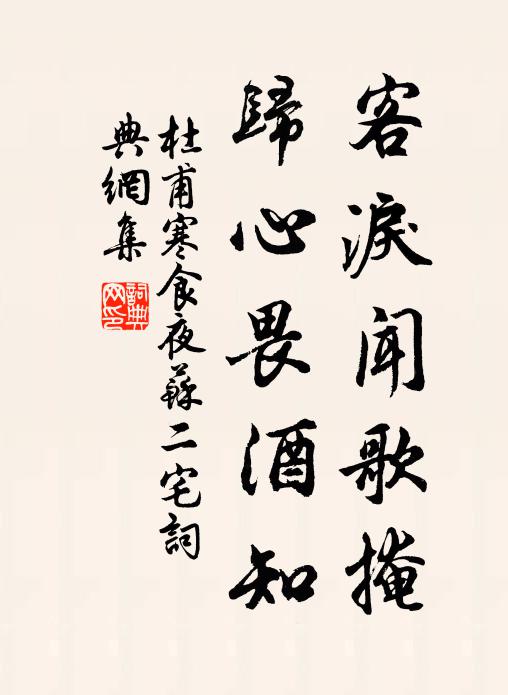 客淚聞歌掩
歸心畏酒知
杜甫寒食夜蘇二宅詞
典網集
詞典
网印